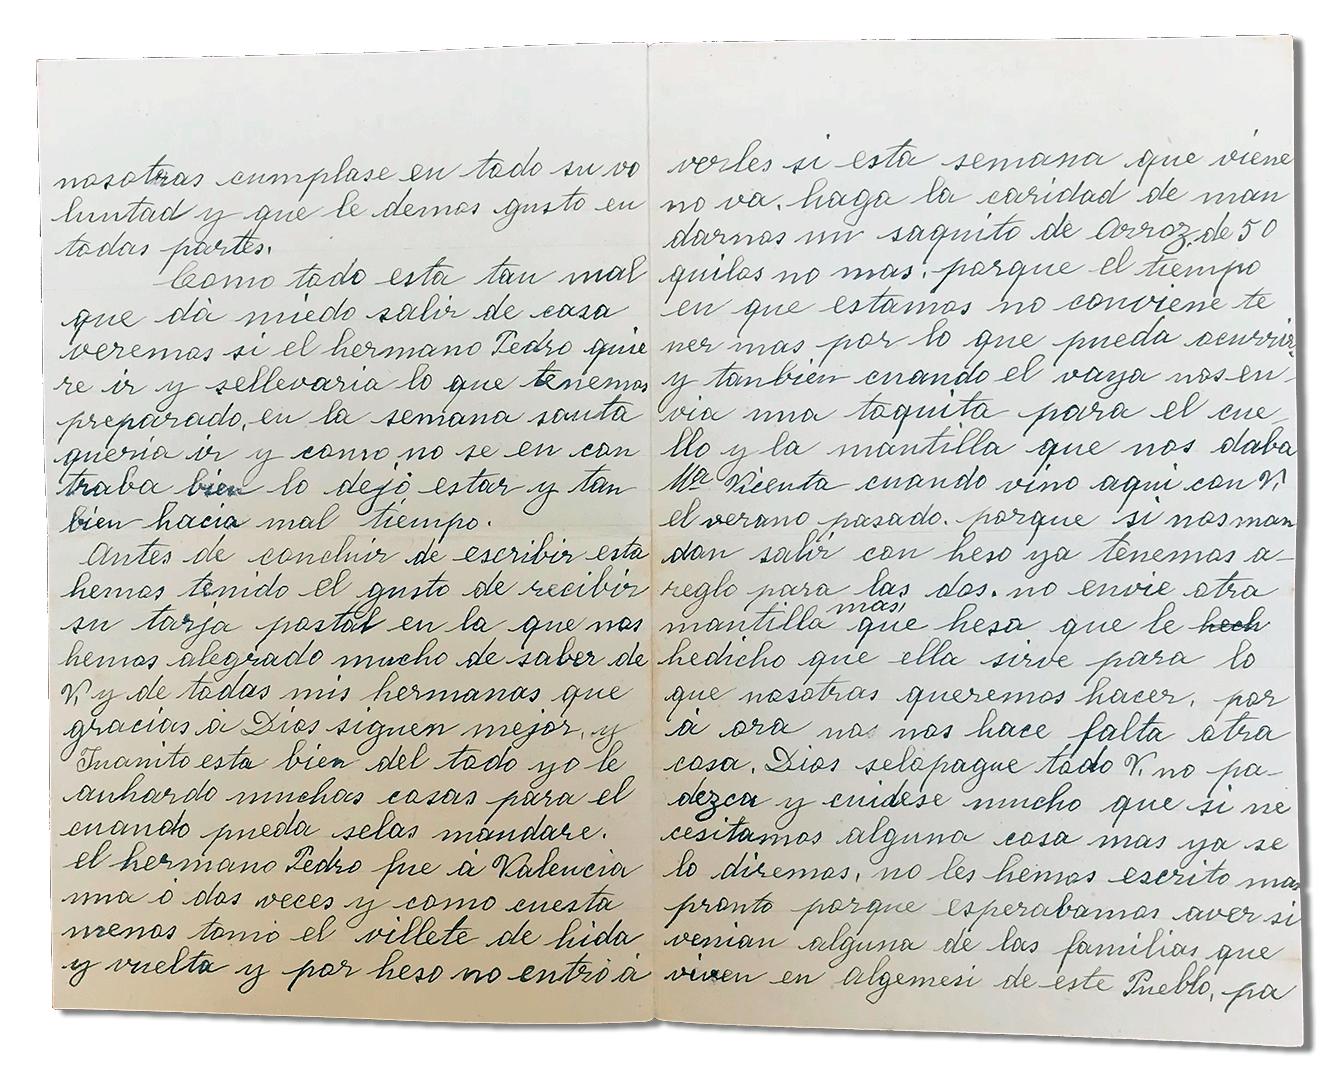 nosotras cumplase en todo su vo
luntad y que le demos gusto en
todas partes.
Como todo esta tan mal
que dà miedo salir de casa
veremos si el hermano Pedro quie
re ir y sellevaria lo que tenemos
preparado, en la semana santa
queria ir y como no se en con
traba bien lo dejó estar y tan
bien hacia mal tiempo.
Antes de concluir de escribir esta
hemos tenido el gusto de recibir
su tarja postal en la que nos
hemos alegrado mucho de saber de
V. y de todas mis hermanas que
gracias à Dios siguen mejor, y
Juanito esta bien del todo yo le
auhardo muchas cosas para el
cuando pueda selas mandare.
el hermano Pedro fue à Valencia
una ó dos veces y como cuesta
menos tomó el villete de hida
y vuelta y por heso no entró à
verles si esta semana que viene
no va. haga la caridad de man
darnos un saquito de Arroz de 50
quilos no mas. porque el tiempo
en que estamos no conviene te
ner mas por lo que pueda ocurrir,
y tanbien cuando el vaya nos en-
via una toquita para el cue-
llo y la mantilla que nos daba
Mª Vicenta cuando vino aqui con V.
el verano pasado. porque si nos man
dan salir con heso ya tenemos a-
reglo para las dos. no envie otra
mantilla mas, que hesa que le hech
hedicho que ella sirve para lo
que nosotras queremos hacer, por
à ora no nos hace falta otra
cosa. Dios selopague todo V. no pa-
dezca y cuidese mucho que si ne
cesitamos alguna cosa mas ya se
lo diremos, no les hemos escrito mas
pronto porque esperabamos aver si
venian alguna de las familias que
viven en algemesi de este Pueblo, pa